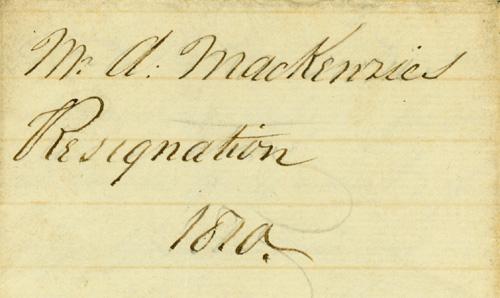 Mr. A. MacKenzies
Resignation
1870.